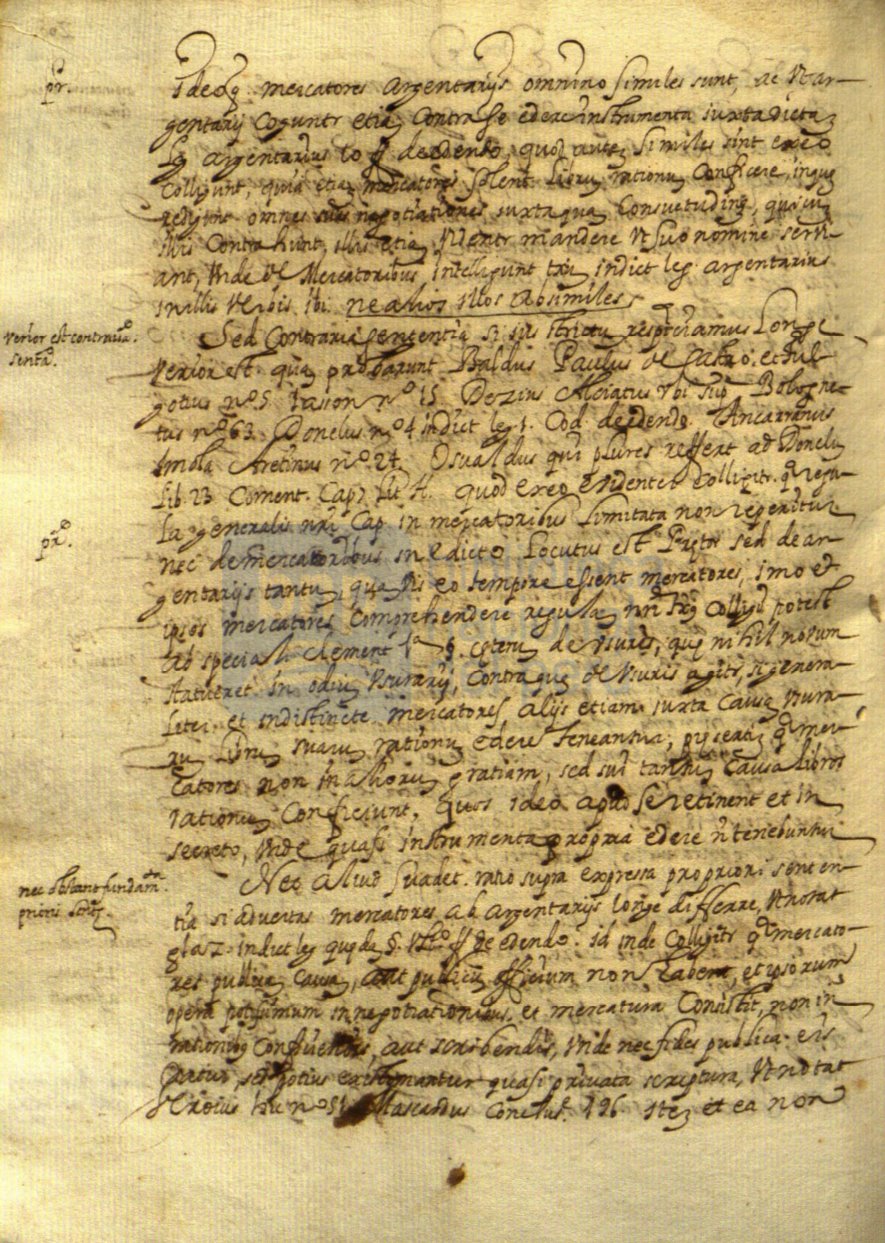 pr.
Ideoq mercatores argentarijs omnino similes sunt, ac Ut ar-
gentarij coguntr etiā contra se edere instrumenta iuxta dicta
Leg argentarius 10 ff de edendo, quod autē similes sint ex eo
Colligunt, quia etiā mercatores solent libru rationū Conficere, in quē
omnes suas negotiationes iuxta quā Consuetudinē, qui cū
illis Contrahunt, illis etiā Videntr mandare Ut suo nomine scri-
ant, Unde de Mercatoribus intelligunt indict leg argentarius
in illis Ibi. ne alios illos absimiles
verior est contraria
sentā.
Sed Contraria sententia si respiciamus Longe
Verior est quā probarunt Baldus Paulus de Castro. et Ful-
gotius no. 5 Iason no 15 Dezius Alciatus Vbi sup Bologne-
tus no 63 Donelus no 4 indict leg 1. Cod. de edendo. Ancarranus
Imola Aretinus no 24. Osualdus qui plures reffert ad Donelū
Lib. 23 Coment. Cap 7 Lit H. quod ex eo evidenter Colligitr. qd regu-
la generalis nri Cap. in mercatoribus Limitata non reperitur
pro.
nec de mercatoribus in edicto Locutus est Prętor sed de ar-
gentarijs tantū, quāvis eo tempore essent mercatores, imo et
ipsos mercatores Comprehendere regulā Colligi potest
ab speciali Clement 1a § cęterū de usuris, quę nihil novum
statueret in odiū Usurarij, Contra quē de Usuris agitr, si genera-
Liter et indistincte mercatores, alijs etiam iuxta Causā
rū suarū rationū edere teneantur; qd mer-
catores non in aliorū gratiam, sed sui tantū Causā libros
rationū Conficiunt. quos ideo apud se retinent et in
secreto, Unde quasi instrumenta propria edere ñ tenebuntur
nec obstant fundam.ta
prioris sentę.
Nec aliud suadet ratio supra expressa pro priori senten-
tia si advertas mercatores ab argentarijs longe differre, Ut notat
glos 2 indict leg quędā § 1 ff de edendo. id inde Colligitr qd mercato-
res publicā Causā, aut publicū officium non habent, et ipsorum
opera potissimum in negotiationibus, et mercatura Consistit, non in
rationibus Conficiendis, aut scribendis, Unde nec fides publica eis
datur, sed potius existimantur quasi privata scriptura, Ut notat
no 51 Mascardus Conclus. 196 Itē et ea non